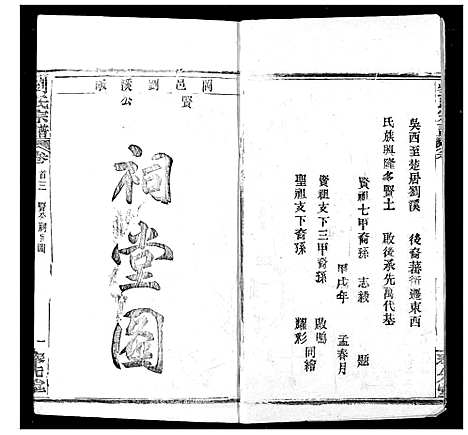 吳西至楚居劉溪　後裔蕃衍遷東西
氏族興隆多賢士　啟後承先萬代基
賢祖七甲裔孫　志毅　題
甲戌年　孟春月
賢祖支下三甲裔孫　啟鳴
聖祖支下裔孫　耀彩　同繪
岡邑劉溪
賢公
祠堂圖
劉氏宗譜　卷首三　賢公祠堂圖　一